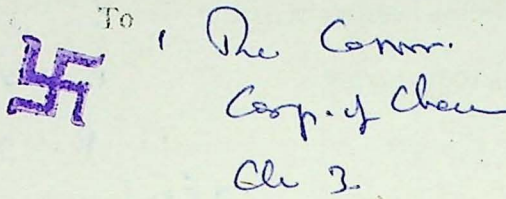 To , The Comm.
Corp. of Chen
Ch 3.